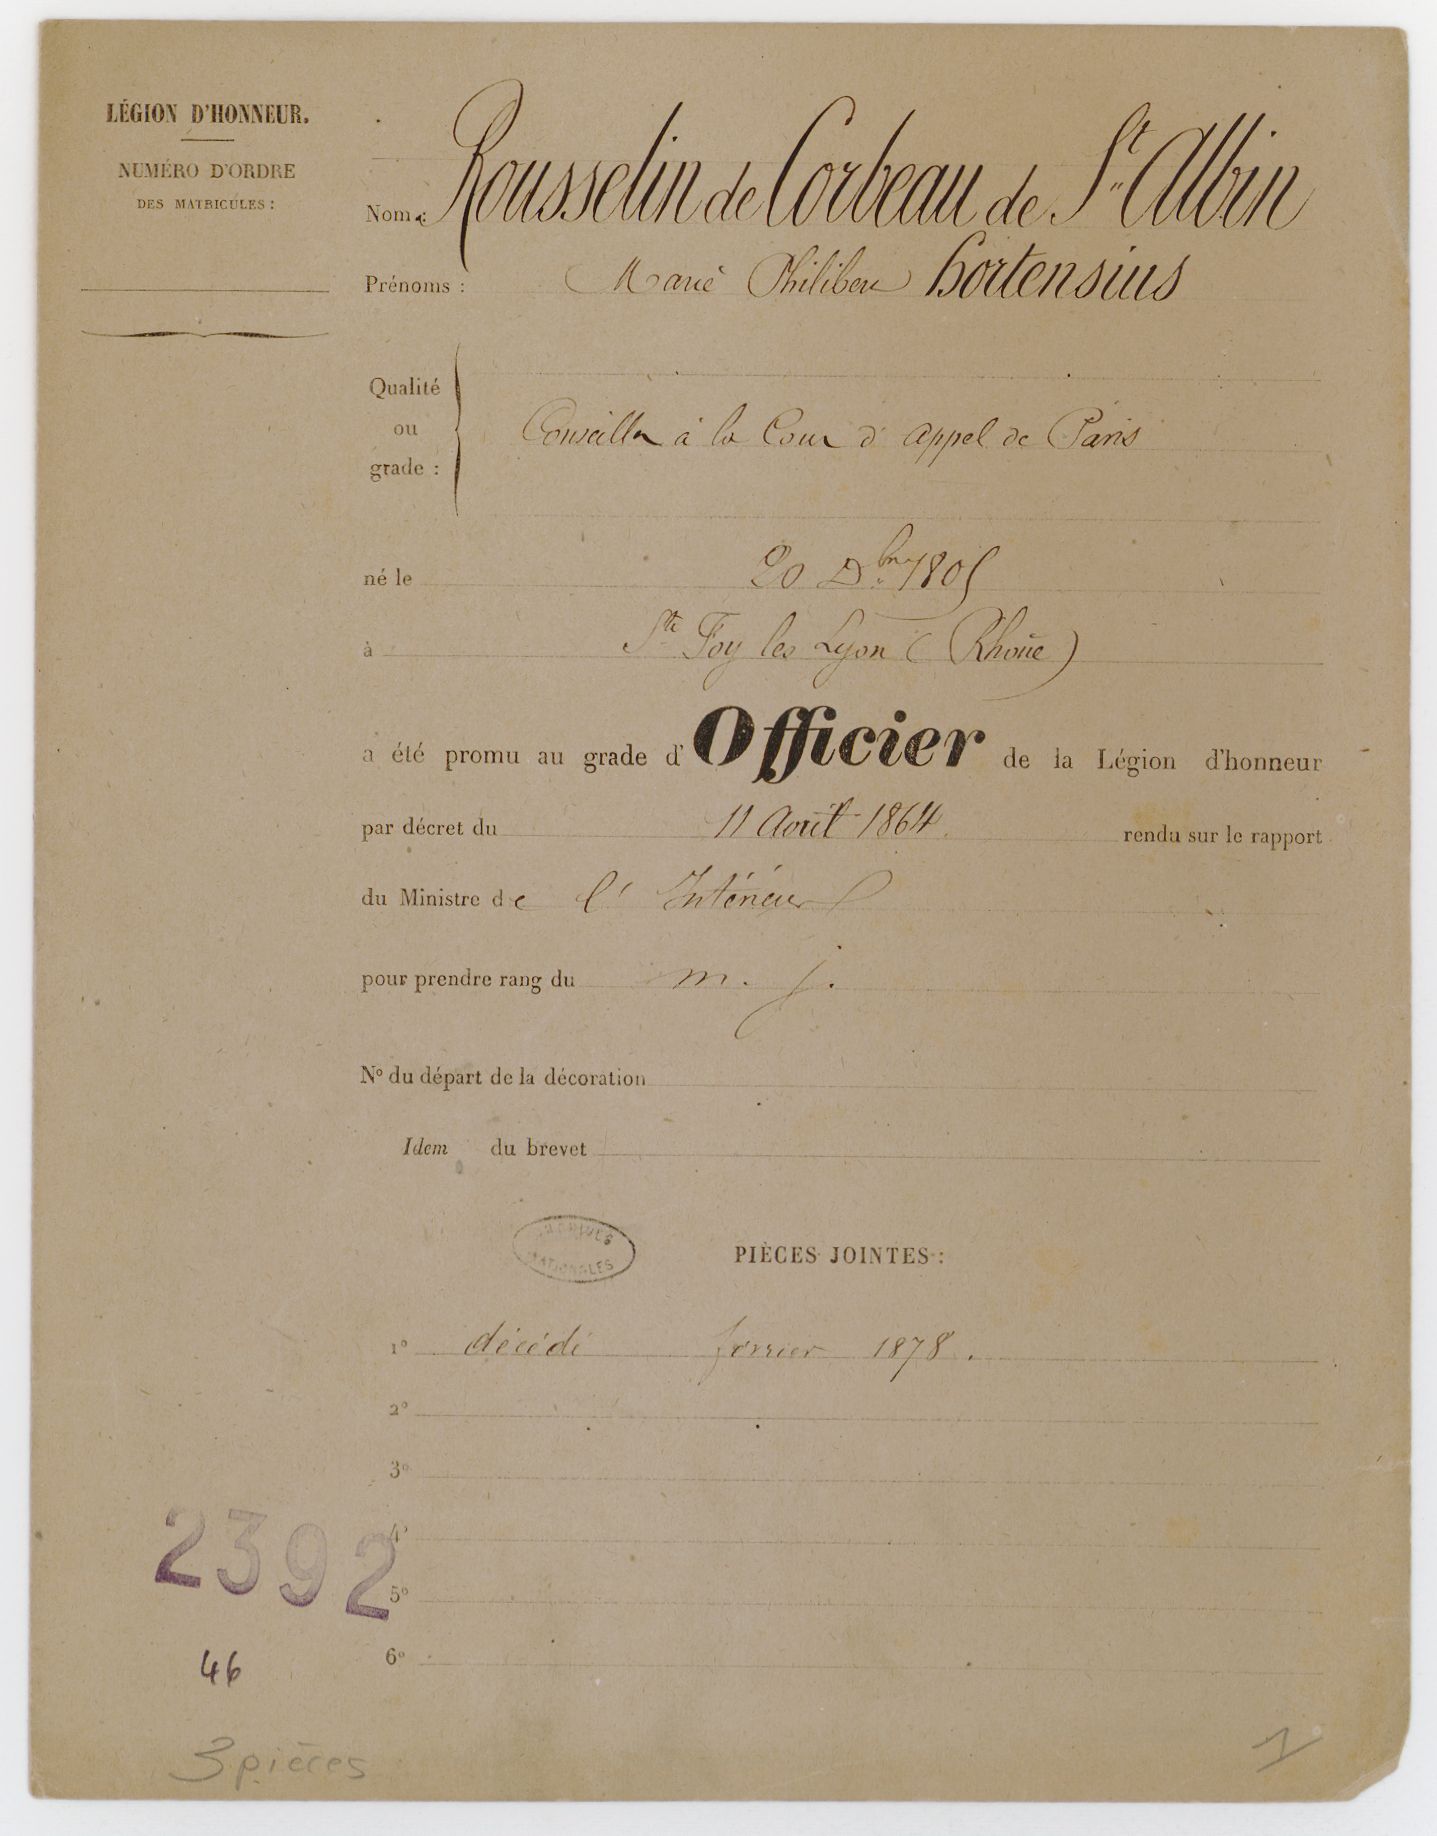 LÉGION D'HONNEUR.
NUMÉRO D'ORDRE
DES MATRICULES :
Nom : Rousselin de Corbeau de St. Albin
Prénoms : Marie Philibert Hortensius
Qualité
ou
grade :
Conseiller à la Cour d'appel de Paris
né le 20 Dbre 1805
à Ste Foy les Lyon (Rhône)
a été promu au grade d'Officier de la Légion d'honneur
par décret du 11 Avril 1864. rendu sur le rapport
du Ministre de l'Intérieur
pour prendre rang du m. j.
No du départ de la décoration
Idem du brevet
ARCHIVES
NATIONALES
PIÈCES JOINTES :
1o décédé février 1878.
2o
3o
4o
5o
6o
2392
46
3 pièces
1